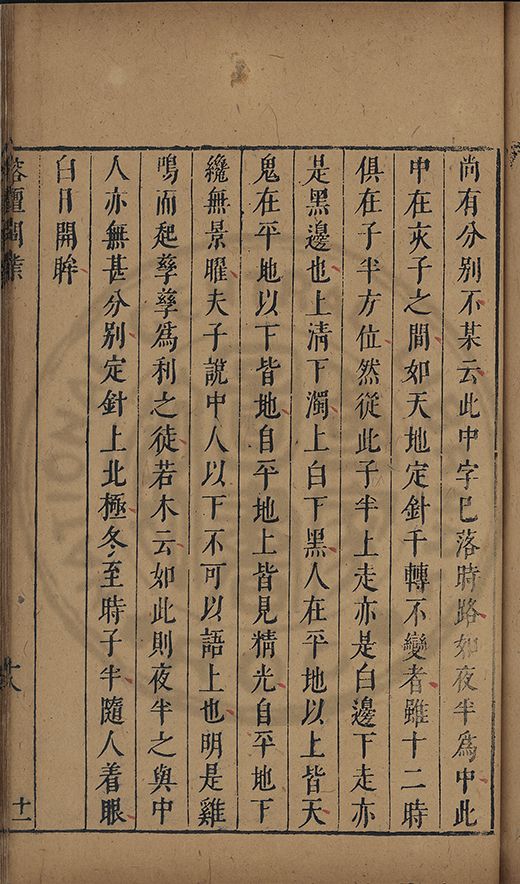 尚有分别不某云此中字已落時路如夜半為中此
中在亥子之間如天地定針千轉不變者雖十二時
俱在子半方位然從此子半上走亦是白邊下走亦
是黑邊也上清下濁上白下黑人在平地以上皆天
鬼在平地以下皆地自平地上皆見精光自平地下
纔無景曜夫子說中人以下不可以語上也明是雞
鳴而起孳孳爲利之徒若木云如此則夜半之與中
人亦無甚分别定針上北極冬至時子半隨人着眼
白日開眸
榕壇問業
十一